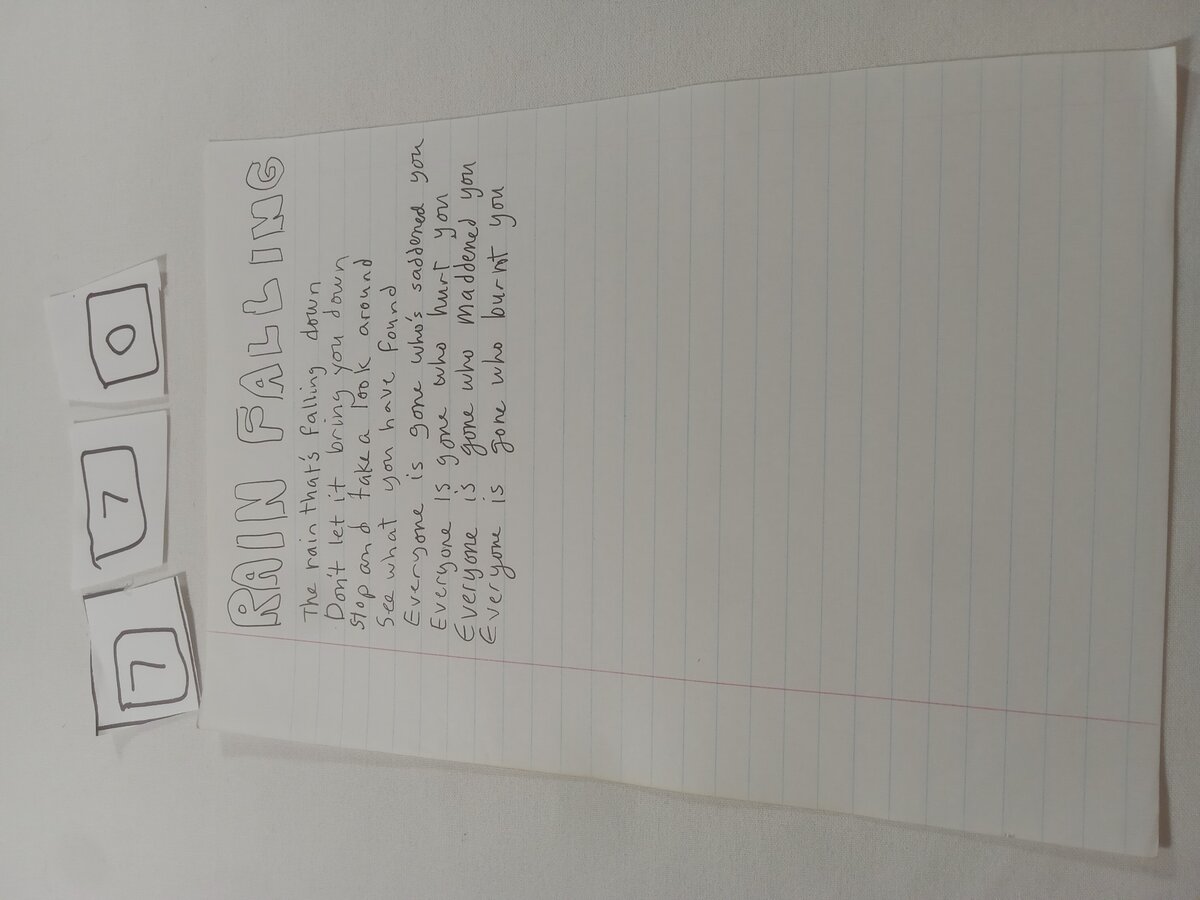 7 7 0
RAIN FALLING
The rain that's falling down
Don't let it bring you down
Stop and take a look around
See what you have found
Everyone is gone who's saddened you
Everyone is gone who hurt you
Everyone is gone who maddened you
Everyone is gone who burnt you